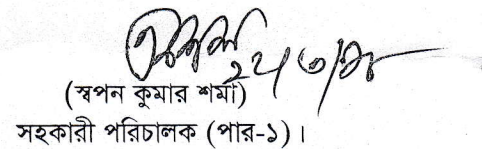 (স্বপন কুমার শর্মা)
সহকারী পরিচালক (পার-১)।